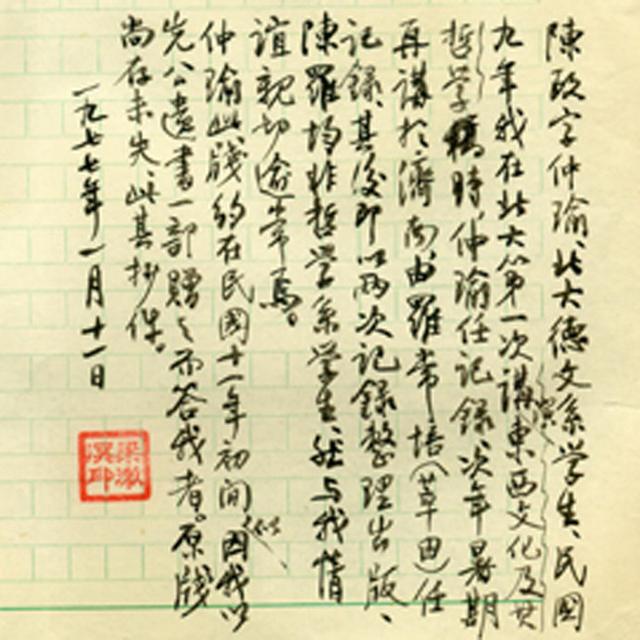 陳政字仲瑜、北大德文系學生、民國
九年我在北大第一次講演東西文化及其
哲學時,仲瑜任記錄、次年暑期
再講於濟南由羅常培(莘田)任
記錄、其後即以兩次記錄整理出版、
陳羅均非哲學系學生、然与我情
誼親切逾常焉。
仲瑜此牋約在民國十一年初間、因我以
先公遺書一部贈之而答我者。原牋
尚存未失、此其抄件。
一九七七年一月十一日
梁漱溟印